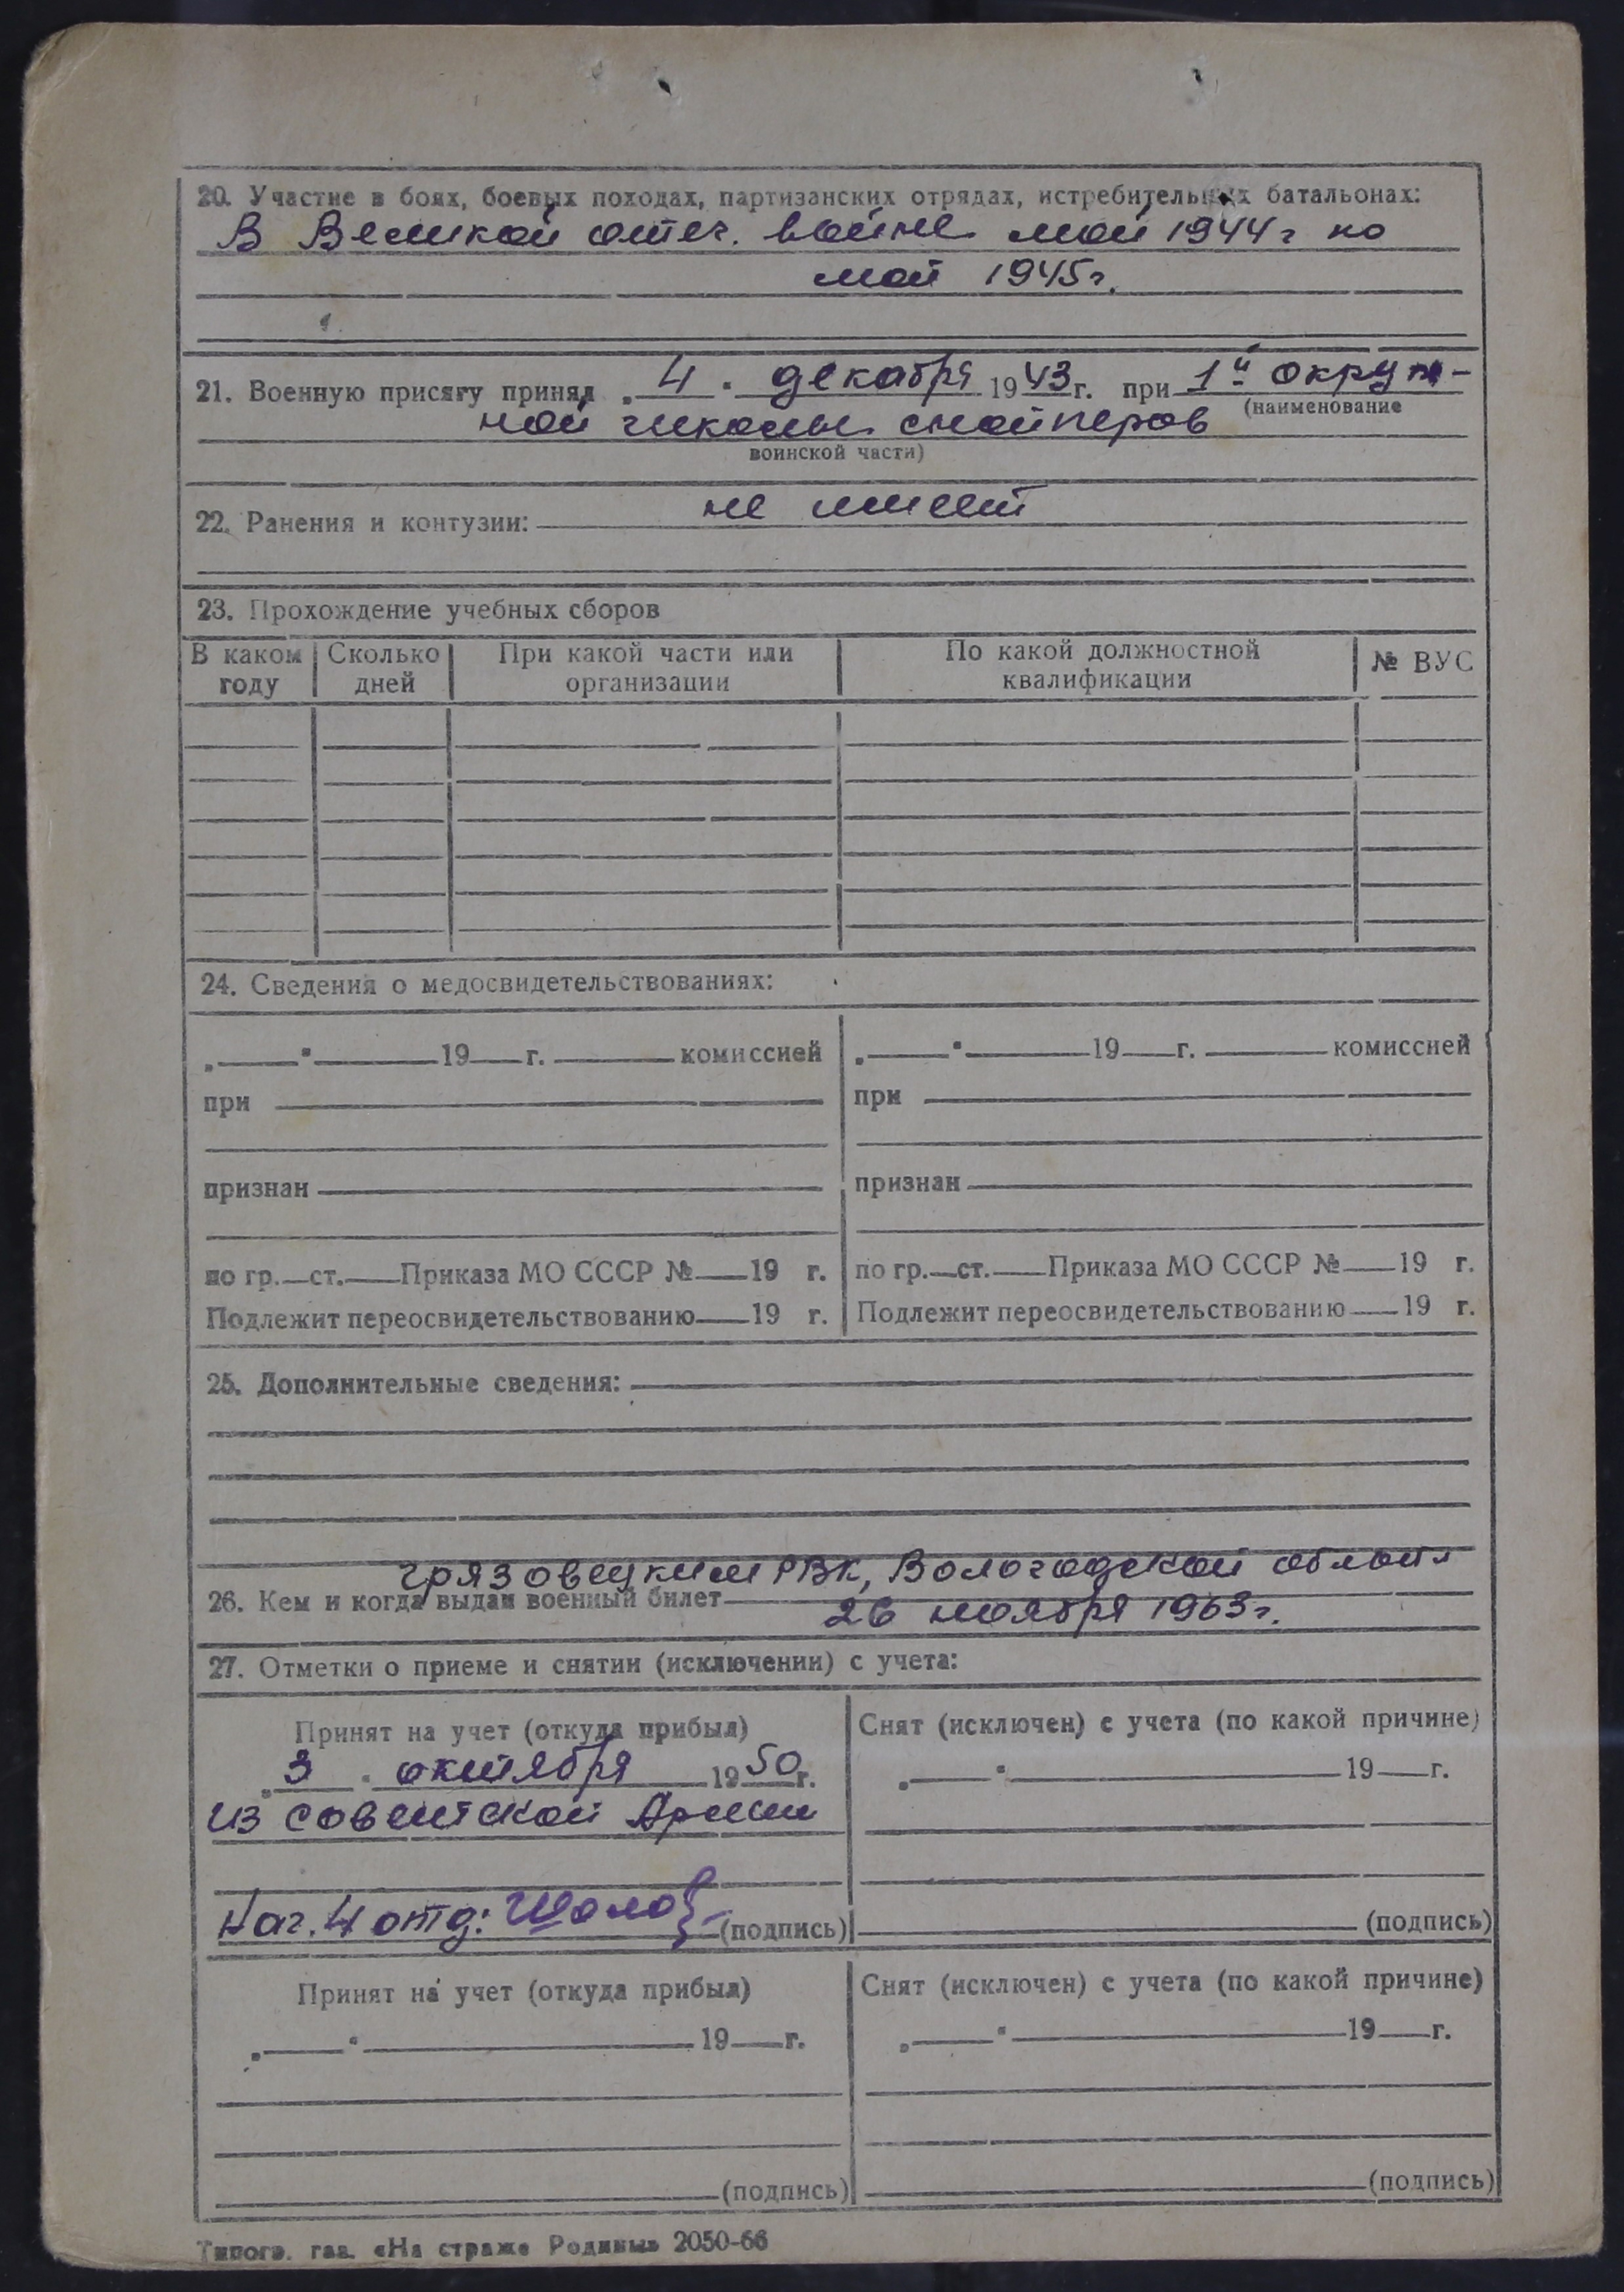 20. Участие в боях, боевых походах, партизанских отрядах, истребительных батальонах:
В Великой отеч. войне май 1944 г по
май 1945 г.
21. Военную присягу принял „ 4 " декабря 1943 г. при 1й окруж-
(наименование
ной школы снайперов
воинской части)
22. Ранения и контузии: не имеет
23. Прохождение учебных сборов
В каком году Сколько дней При какой части или организации По какой должностной квалификации № ВУС
24. Сведения о медосвидетельствованиях:
„ " 19 г. комиссией „ " 19 г. комиссией
при при
признан признан
по гр. ст. Приказа МО СССР № 19 г. по гр. ст. Приказа МО СССР № 19 г.
Подлежит переосвидетельствованию 19 г. Подлежит переосвидетельствованию 19 г.
25. Дополнительные сведения:
Грязовецким РВК, Вологодской
26. Кем и когда выдан военный билет
26 ноября 1963 г.
27. Отметки о приеме и снятии (исключении) с учета:
Принят на учет (откуда прибыл) Снят (исключен) с учета (по какой причине)
„ 3 " октября 1950 г. „ " 19 г.
из советской Армии
Нач. 4 отд: (подпись) (подпись)
Принят на учет (откуда прибыл) Снят (исключен) с учета (по какой причине)
„ " 19 г. „ " 19 г.
(подпись) (подпись)
Типогр. газ. «На страже Родины» 2050-66